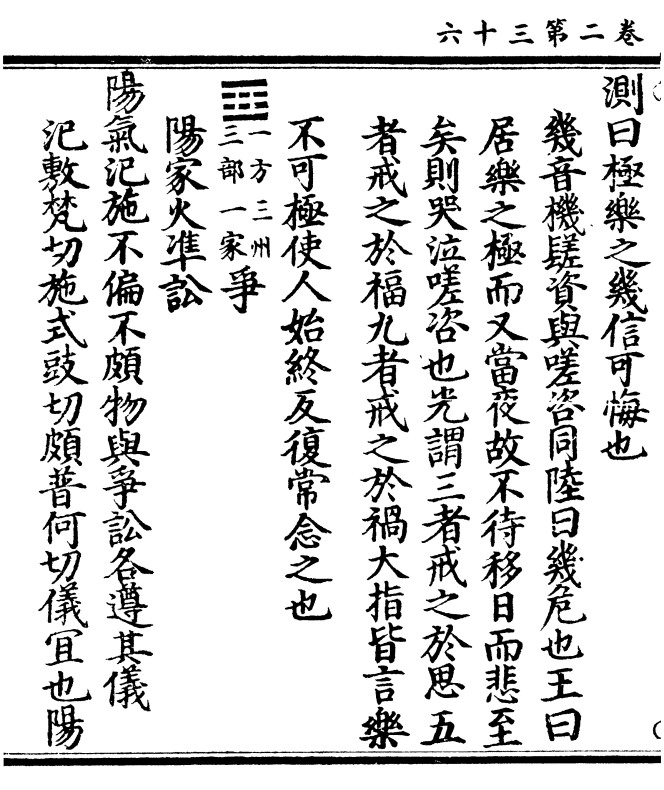 卷二第三十六
測曰極樂之幾信可悔也
幾音機䁟資與嗟咨同陸曰幾危也王曰
居樂之極而又當夜故不待移日而悲至
矣則哭泣嗟咨也光謂三者戒之於思五
者戒之於福九者戒之於禍大指皆言樂
不可極使人始終反復常念之也
一方三州
三部一家
爭
陽家火準訟
陽氣氾施不偏不頗物與爭訟各遵其儀
氾敷梵切施式豉切頗普何切儀宜也陽